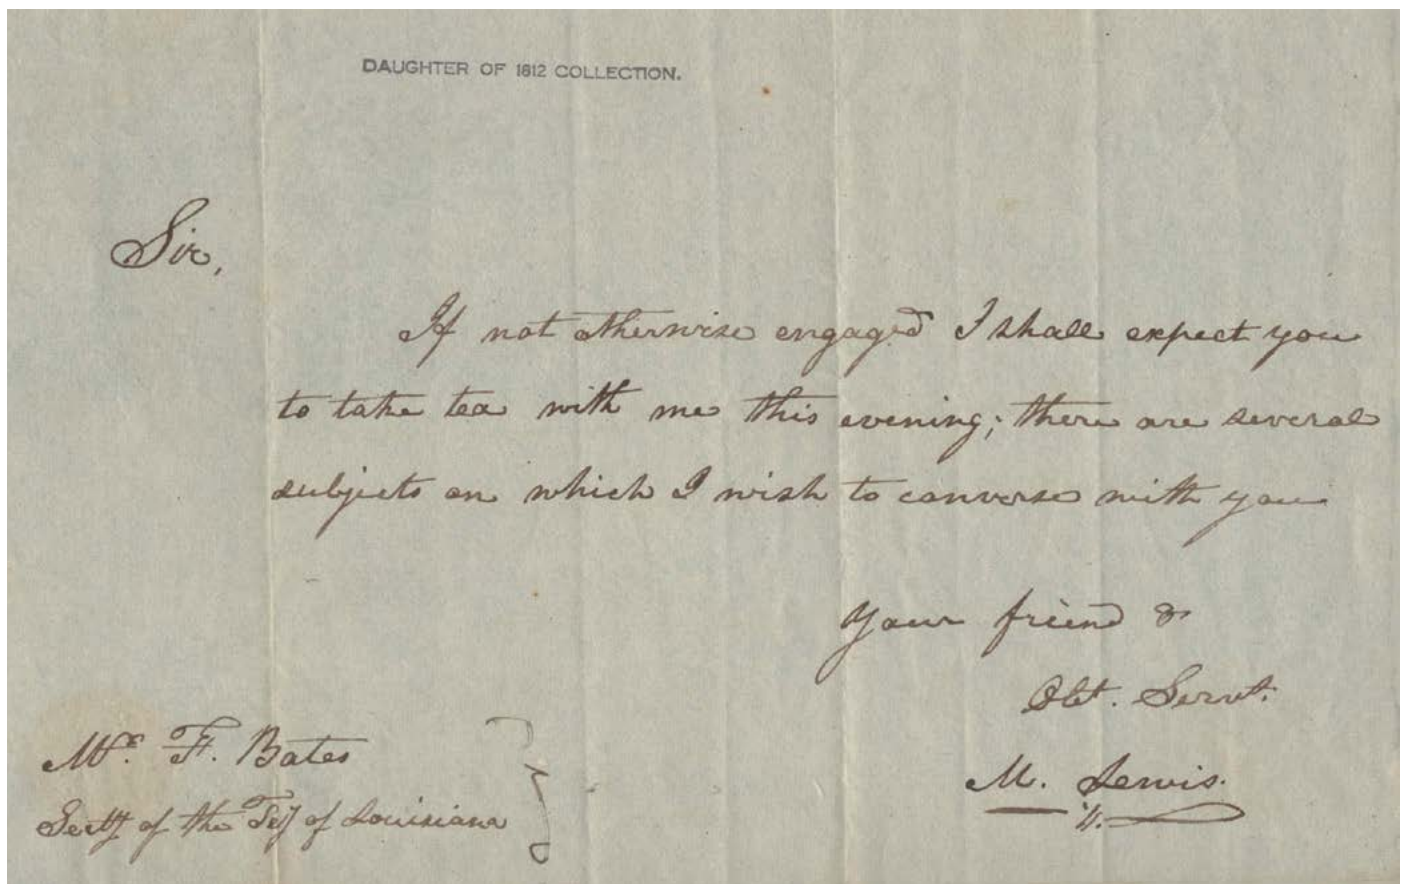 DAUGHTER OF 1812 COLLECTION.
Sir,
If not otherwise engaged I shall expect you
to take tea with me this evening; there are several
subjects on which I wish to converse with you
Your friend &
Obt. Servt.
Mr. F. Bates
M. Lewis.
Secty of the Tey of Louisiana